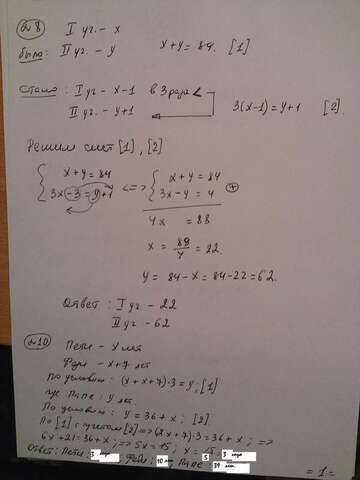 №8 I уг. - x
было: II уг. - y x+y=84. [1]
Стало: I уг - x-1 в 3 раза <
II уг. - y+1 3(x-1)=y+1 [2].
Решим сист [1], [2]
x+y=84 <=> x+y=84
3x-3=y+1 3x-y=4 +
4x = 88
x = 88/4 = 22.
y = 84-x = 84-22=62.
Ответ: I уг - 22
II уг - 62
№10 Петя - x лет
Федя - x+7 лет
По условию: (x+x+7)·3=y; [1]
где Папе: y лет.
По условию: y=36+x; [2]
По [1] с учетом [2] => (2x+7)·3=36+x; =>
6x+21=36+x; => 5x=15; x=
Ответ: Пете: 3 Феде: 10 Папе: 39 лет
= 1 =